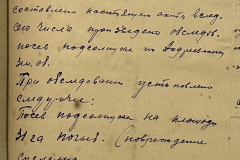 составлено настоящего акта в след.
его числа произведено обследов.
посев подсолнуха по
При обследовании установлено
следующие:
Посев подсолнуха на площади
31 га погиб. (повреждение